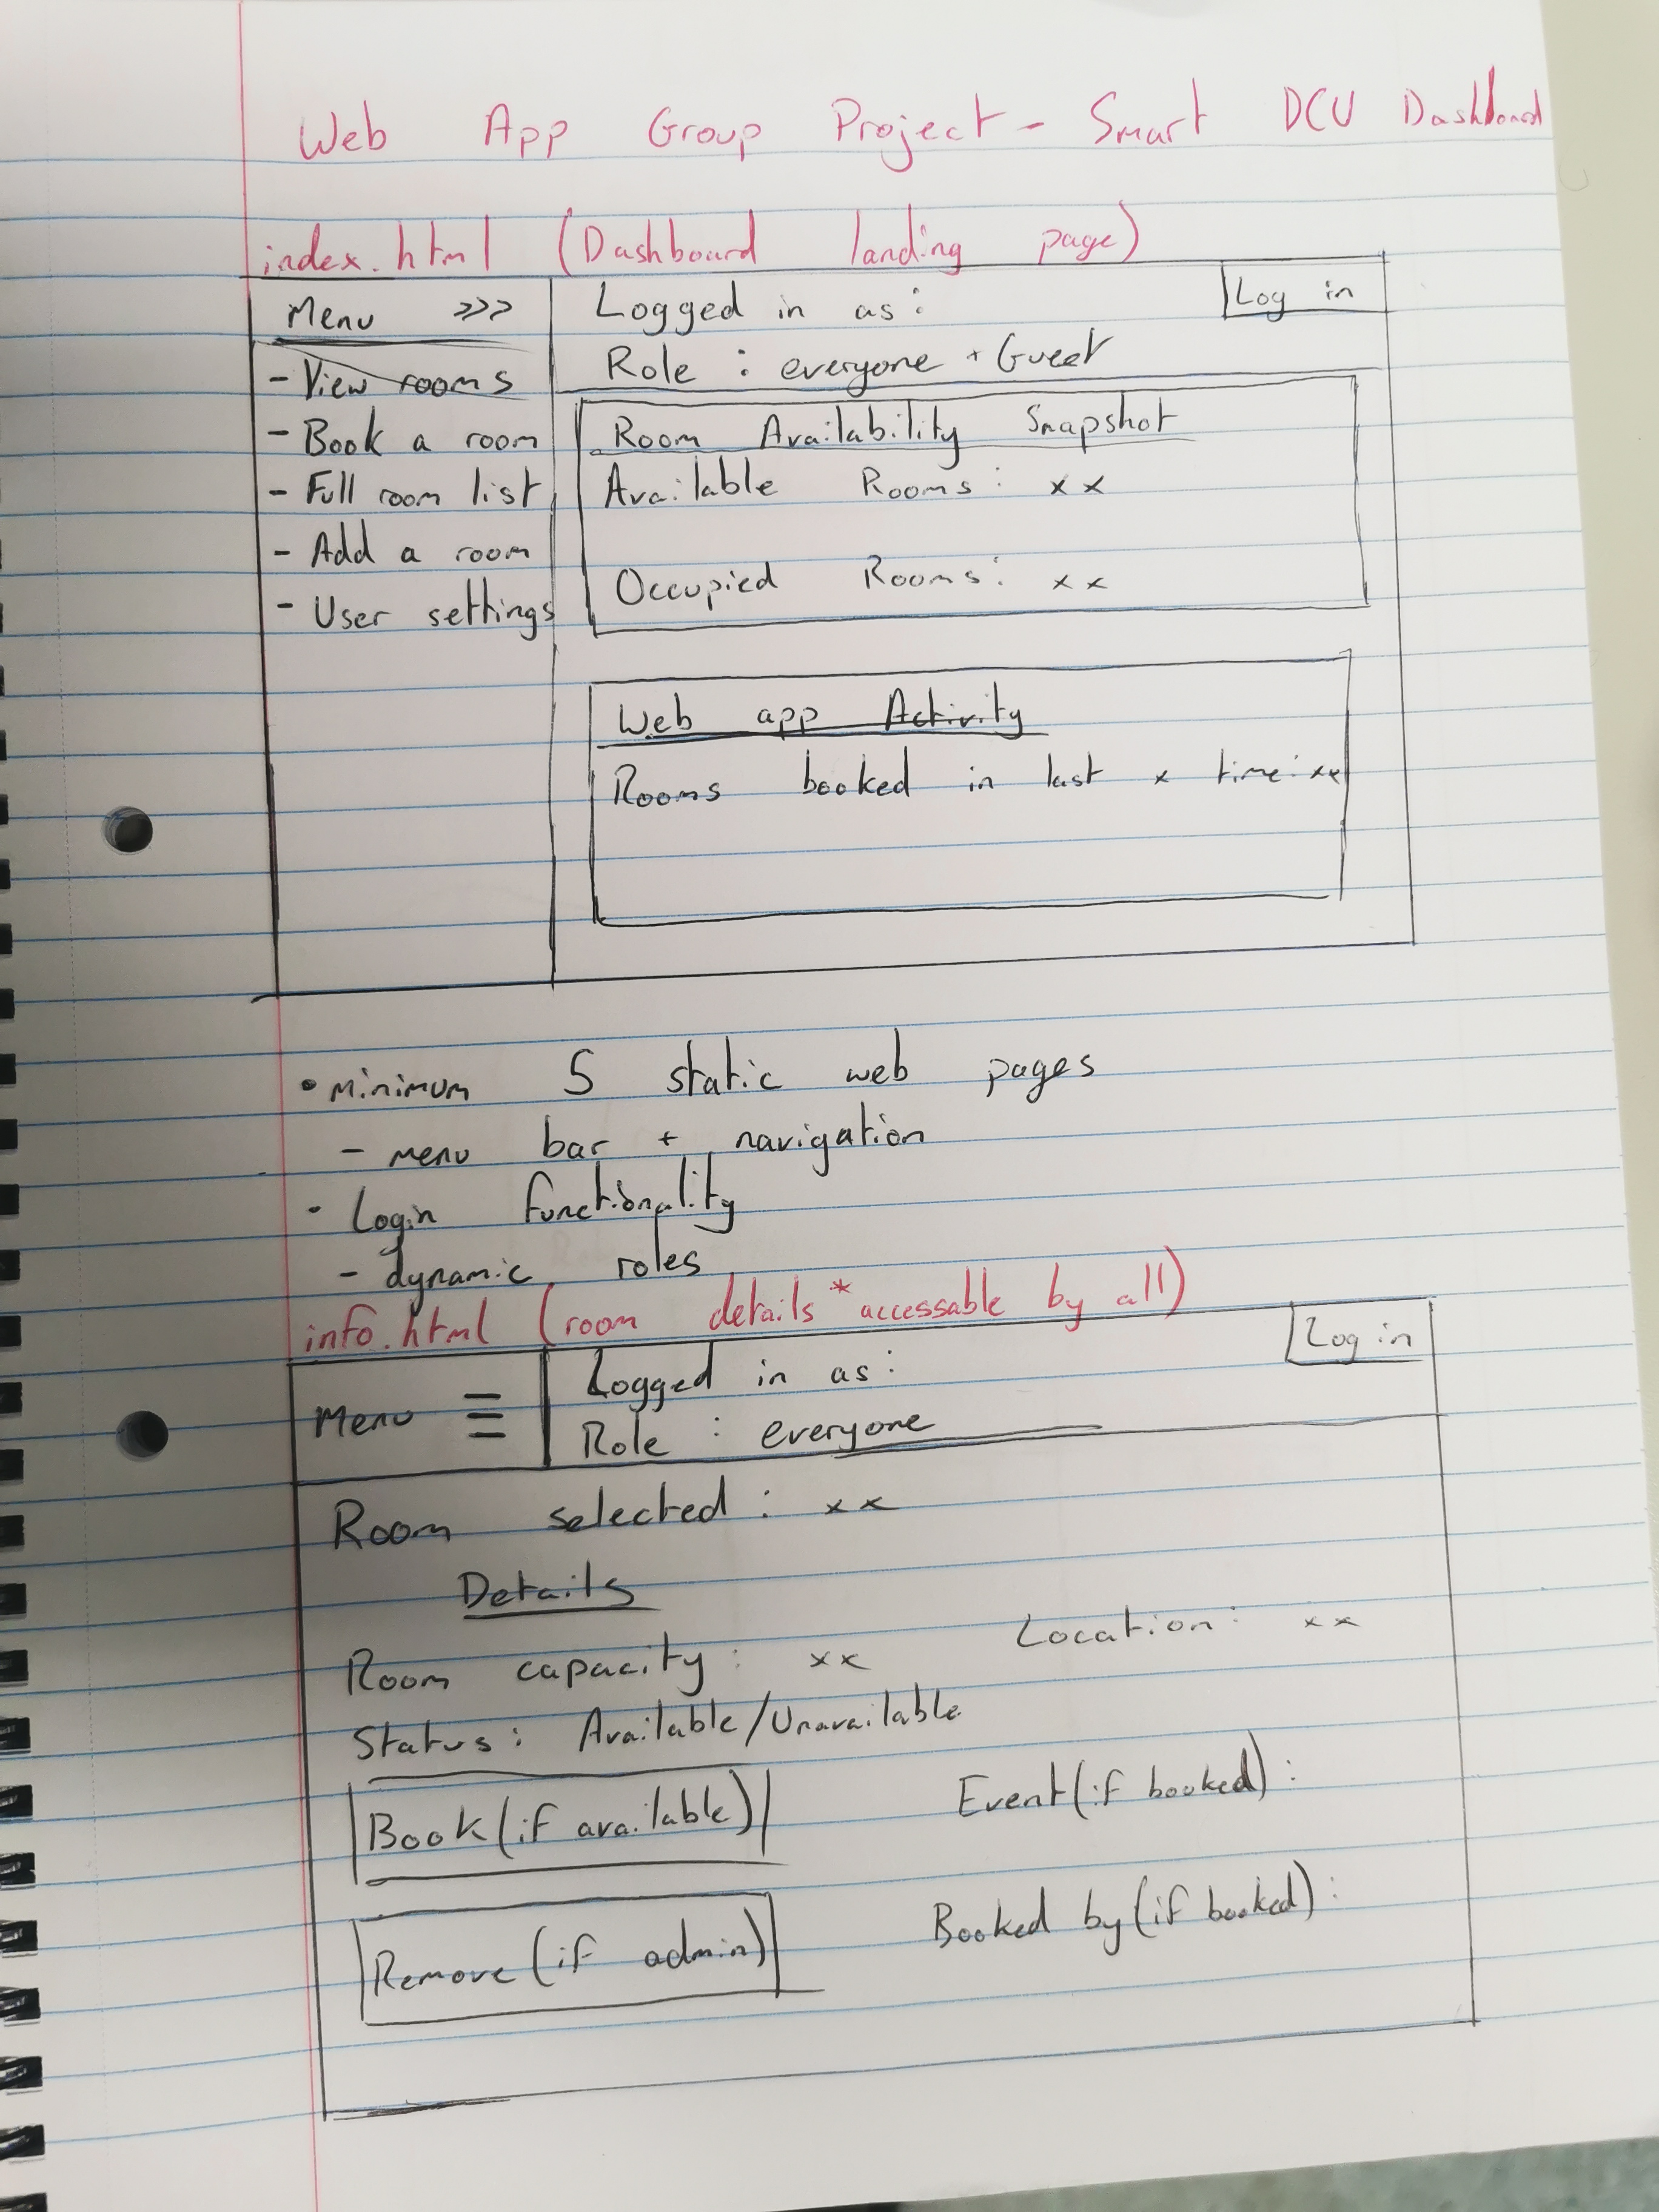 Web App Group Project - Smart DCU Dashboard
index.html (Dashboard landing page)
Menu >>>
- View rooms
- Book a room
- Full room list
- Add a room
- User settings
Logged in as:
Log in
Role : everyone + Guest
Room Availability Snapshot
Available Rooms: xx
Occupied Rooms: xx
Web app Activity
Rooms booked in last x time: xx
• minimum 5 static web pages
- menu bar + navigation
• Login functionality
- dynamic roles
info.html (room details *accessable by all)
Menu
Logged in as:
Log in
Role : everyone
Room selected : xx
Details
Room capacity : xx Location: xx
Status: Available/Unavailable
Book (if available)
Event (if booked):
Remove (if admin)
Booked by (if booked):